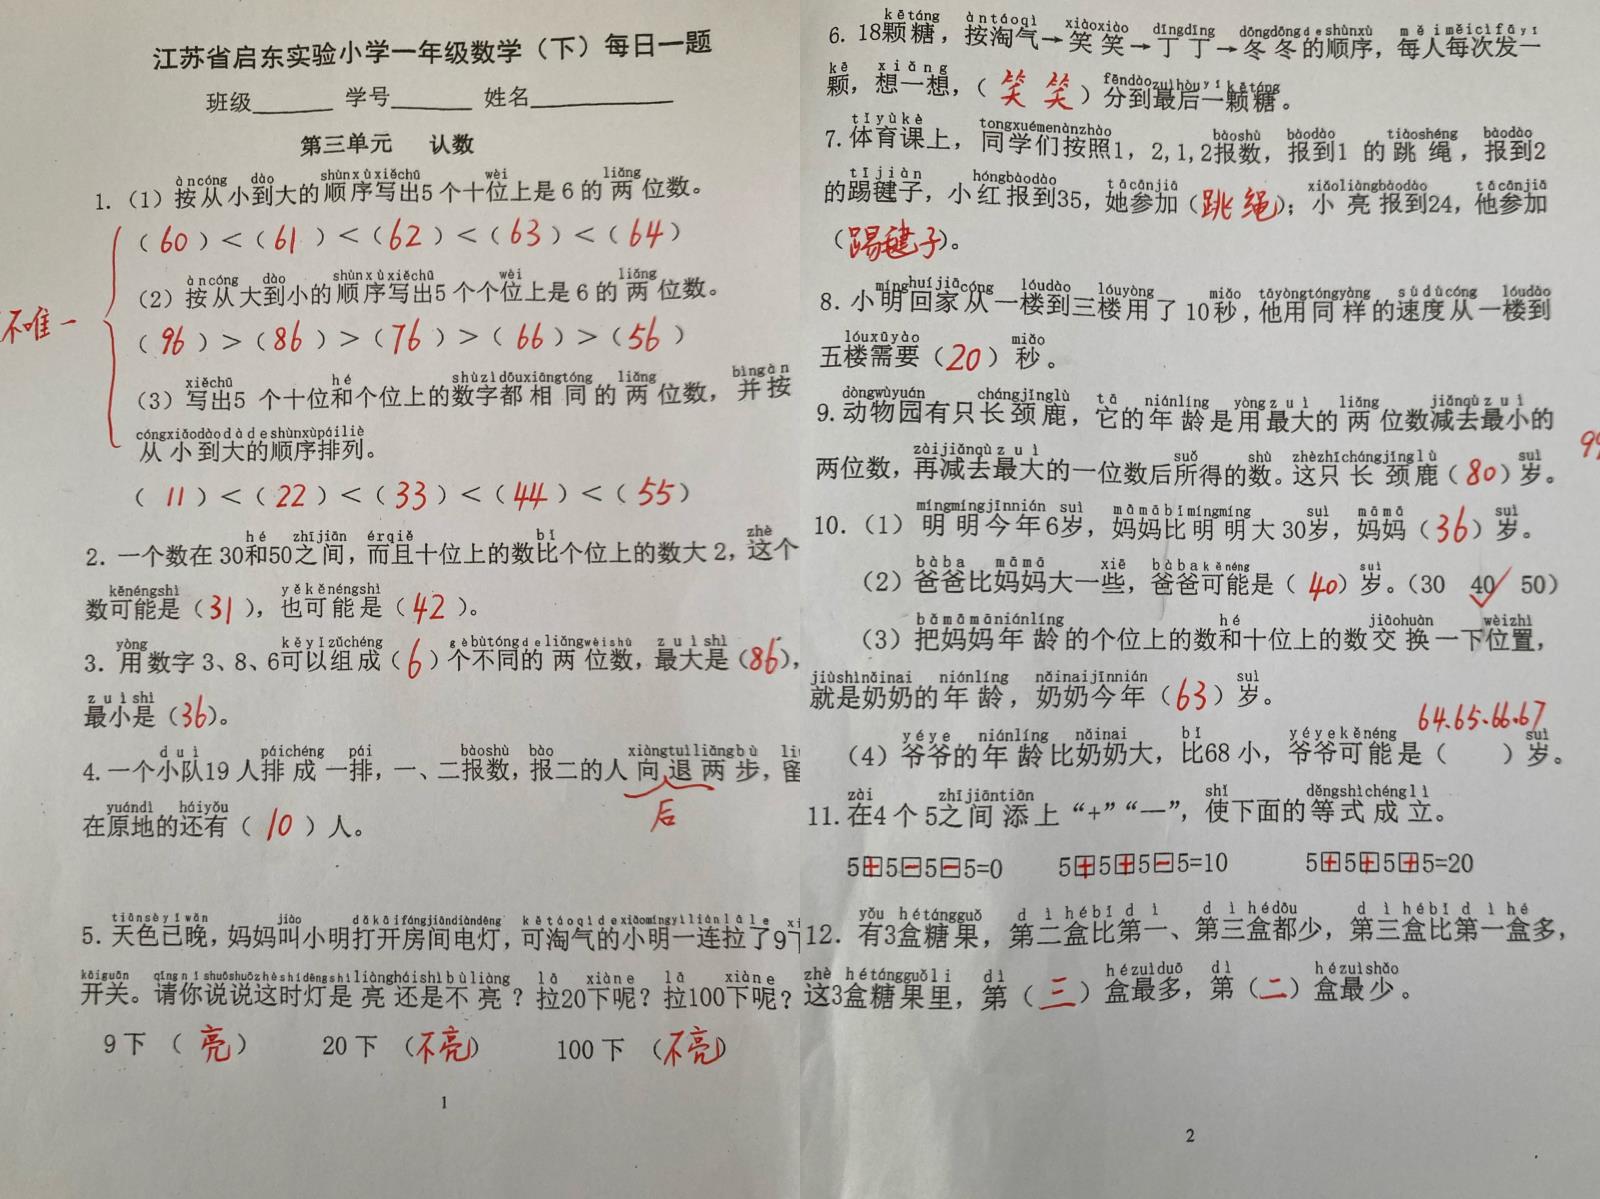 江苏省启东实验小学一年级数学（下）每日一题
班级______ 学号______ 姓名__________
第三单元 认数
1.（1）按从小到大的顺序写出5个十位上是6的两位数。
（60）＜（61）＜（62）＜（63）＜（64）
不唯一
（2）按从大到小的顺序写出5个个位上是6的两位数。
（96）＞（86）＞（76）＞（66）＞（56）
（3）写出5个十位和个位上的数字都相同的两位数，并按
从小到大的顺序排列。
（11）＜（22）＜（33）＜（44）＜（55）
2.一个数在30和50之间，而且十位上的数比个位上的数大2，这个
数可能是（31），也可能是（42）。
3.用数字3、8、6可以组成（6）个不同的两位数，最大是（86），
最小是（36）。
4.一个小队19人排成一排，一、二报数，报二的人向退两步，留
后
在原地的还有（10）人。
5.天色已晚，妈妈叫小明打开房间电灯，可淘气的小明一连拉了9下
开关。请你说说这时灯是亮还是不亮？拉20下呢？拉100下呢？
9下（亮） 20下（不亮） 100下（不亮）
1
6.18颗糖，按淘气→笑笑→丁丁→冬冬的顺序，每人每次发一
颗，想一想，（笑笑）分到最后一颗糖。
7.体育课上，同学们按照1，2,1,2报数，报到1的跳绳，报到2
的踢毽子，小红报到35，她参加（跳绳）；小亮报到24，他参加
（踢毽子）。
8.小明回家从一楼到三楼用了10秒，他用同样的速度从一楼到
五楼需要（20）秒。
9.动物园有只长颈鹿，它的年龄是用最大的两位数减去最小的
两位数，再减去最大的一位数后所得的数。这只长颈鹿（80）岁。
10.（1）明明今年6岁，妈妈比明明大30岁，妈妈（36）岁。
（2）爸爸比妈妈大一些，爸爸可能是（40）岁。（30 40✓ 50）
（3）把妈妈年龄的个位上的数和十位上的数交换一下位置，
就是奶奶的年龄，奶奶今年（63）岁。
64、65、66、67
（4）爷爷的年龄比奶奶大，比68小，爷爷可能是（ ）岁。
11.在4个5之间添上“+”“—”，使下面的等式成立。
5+5-5-5=0 5+5+5-5=10 5+5+5+5=20
12.有3盒糖果，第二盒比第一、第三盒都少，第三盒比第一盒多，
这3盒糖果里，第（三）盒最多，第（二）盒最少。
2